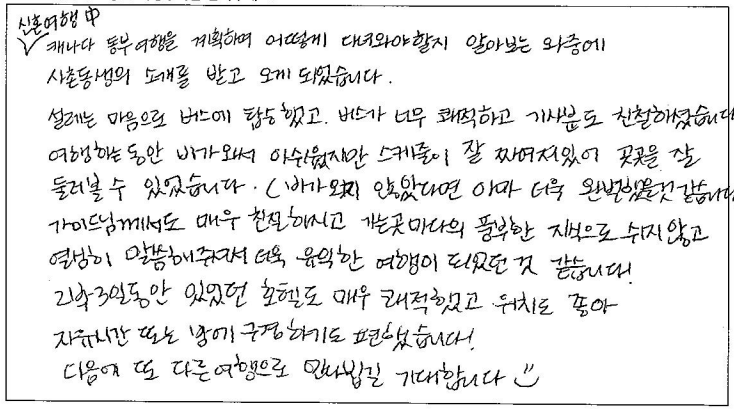 신혼여행 中
캐나다 동부여행을 계획하며 어떻게 다녀와야할지 알아보는 와중에
사촌동생의 소개를 받고 오게 되었습니다.
설레는 마음으로 버스에 탑승했고. 버스가 너무 쾌적하고 기사분도 친절하셨습니다
여행하는 동안 비가와서 아쉬웠지만 스케줄이 잘 짜여져있어 곳곳을 잘
둘러볼 수 있었습니다. (비가오지 않았다면 아마 더욱 완벽했을것 같습니다
가이드님께서도 매우 친절하시고 가는곳마다의 풍부한 지식으로 쉬지않고
열심히 말씀해주셔서 더욱 유익한 여행이 되었던 것 같습니다!
2박3일동안 있었던 호텔도 매우 쾌적했고 위치도 좋아
자유시간 또는 밤에 구경하기도 편했습니다!
다음에 또 다른여행으로 만나뵙길 기대합니다